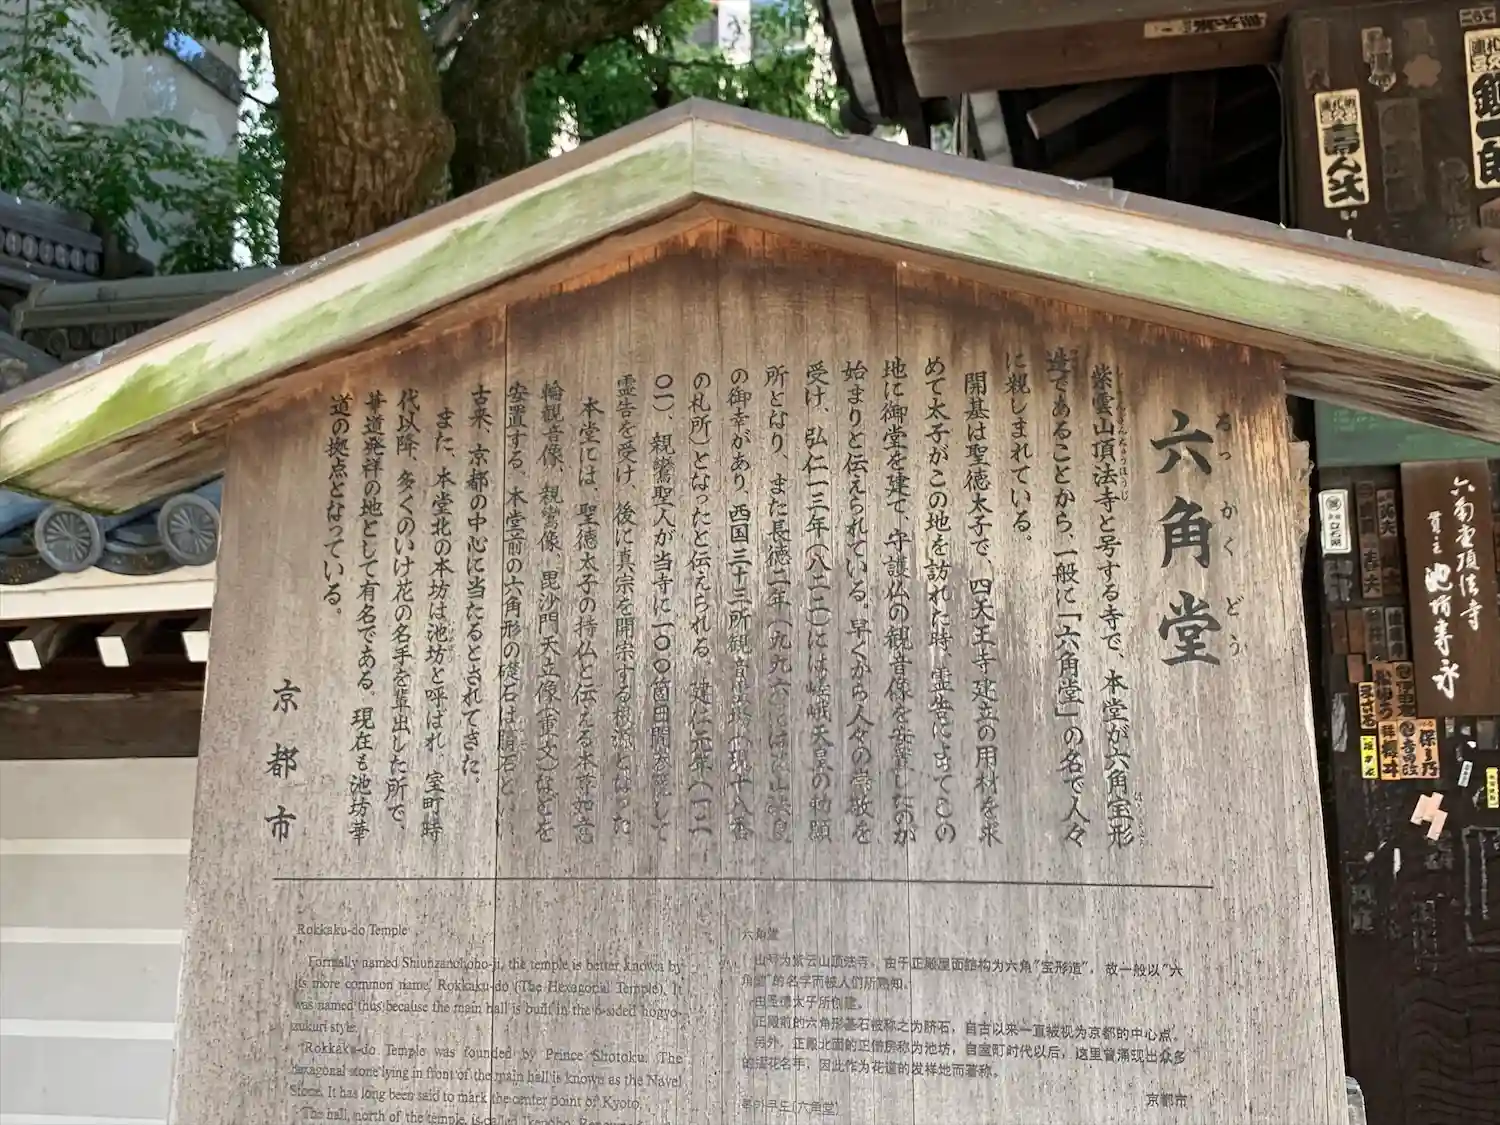 六角堂
ろっかくどう
紫雲山頂法寺と号する寺で、本堂が六角宝形
造であることから、一般に「六角堂」の名で人々
に親しまれている。
開基は聖徳太子で、四天王寺建立の用材を求
めて太子がこの地を訪れた時、霊告によってこの
地に御堂を建て、守護仏の観音像を安置したのが
始まりと伝えられている。早くから人々の崇敬を
受け、弘仁一三年(八二二)には嵯峨天皇の勅願
所となり、また長徳二年(九九六)には花山法皇
の御幸があり、西国三十三所観音霊場(現十八番
の札所)となったと伝えられる。建仁元年(一二
〇一)、親鸞聖人が当寺に一〇〇箇日間参籠して
霊告を受け、後に真宗を開宗する根源となった
本堂には、聖徳太子の持仏と伝える本尊如意
輪観音像、親鸞像、毘沙門天立像(重文)などを
安置する。本堂前の六角形の礎石は臍石といい
古来、京都の中心に当たるとされてきた。
また、本堂北の本坊は池坊と呼ばれ、室町時
代以降、多くのいけ花の名手を輩出した所で、
華道発祥の地として有名である。現在も池坊華
道の拠点となっている。
京都市
Rokkaku-do Temple
Formally named Shiunzanchoho-ji, the temple is better known by
its more common name, Rokkaku-do (The Hexagonal Temple). It
was named thus because the main hall is built in the 6-sided hogyo-
zukuri style.
Rokkaku-do Temple was founded by Prince Shotoku. The
hexagonal stone lying in front of the main hall is known as the Navel
Stone. It has long been said to mark the center point of Kyoto.
The hall, north of the temple, is called Ikenobo.
六角堂
山号为紫云山顶法寺。由于正殿屋面结构为六角"宝形造"，故一般以"六
角堂"的名字而被人们所熟知。
由圣德太子所创建。
正殿前的六角形基石被称之为脐石，自古以来一直被视为京都的中心点。
另外，正殿北面的正僧房称为池坊，自室町时代以后，这里曾涌现出众多
的插花名手，因此作为花道的发祥地而著称。
京都市
(六角堂)
六角堂頂法寺